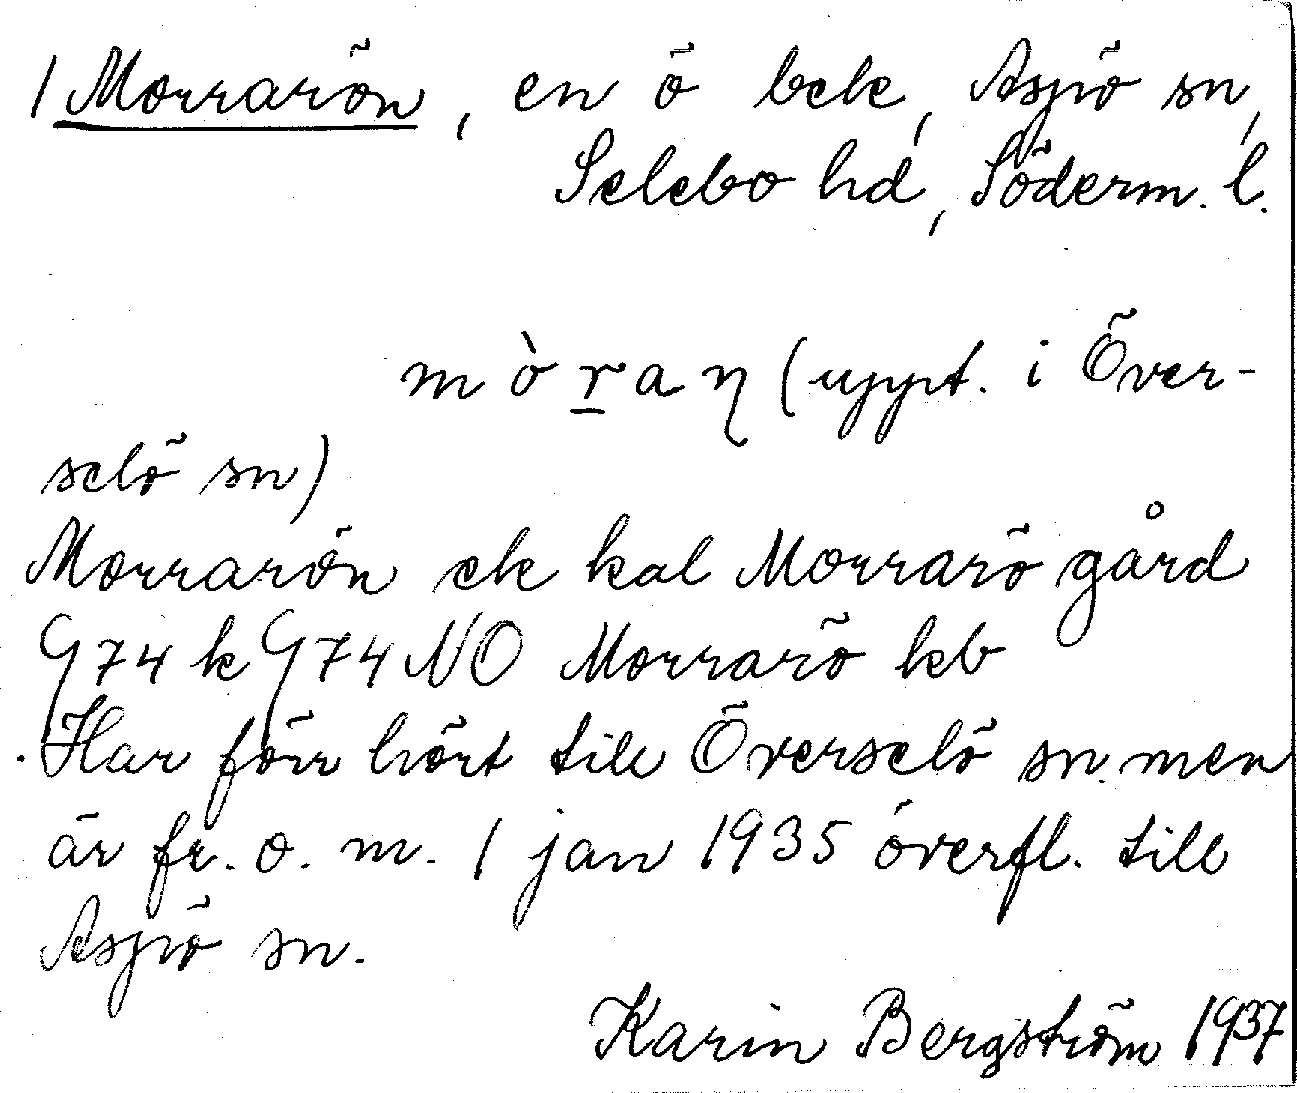 1 Morrarön, en ö bek, Aspö sn,
Selebo hd, Söderm. l.
mòr̲aη (uppt. i Över-
selö sn)
Morrarön ek kal Morrarö gård
G74 k G74 NO Morrarö kb
Har förr hört till Överselö sn. men
är fr. o. m. 1 jan 1935 överfl. till
Aspö sn.
Karin Bergström 1937